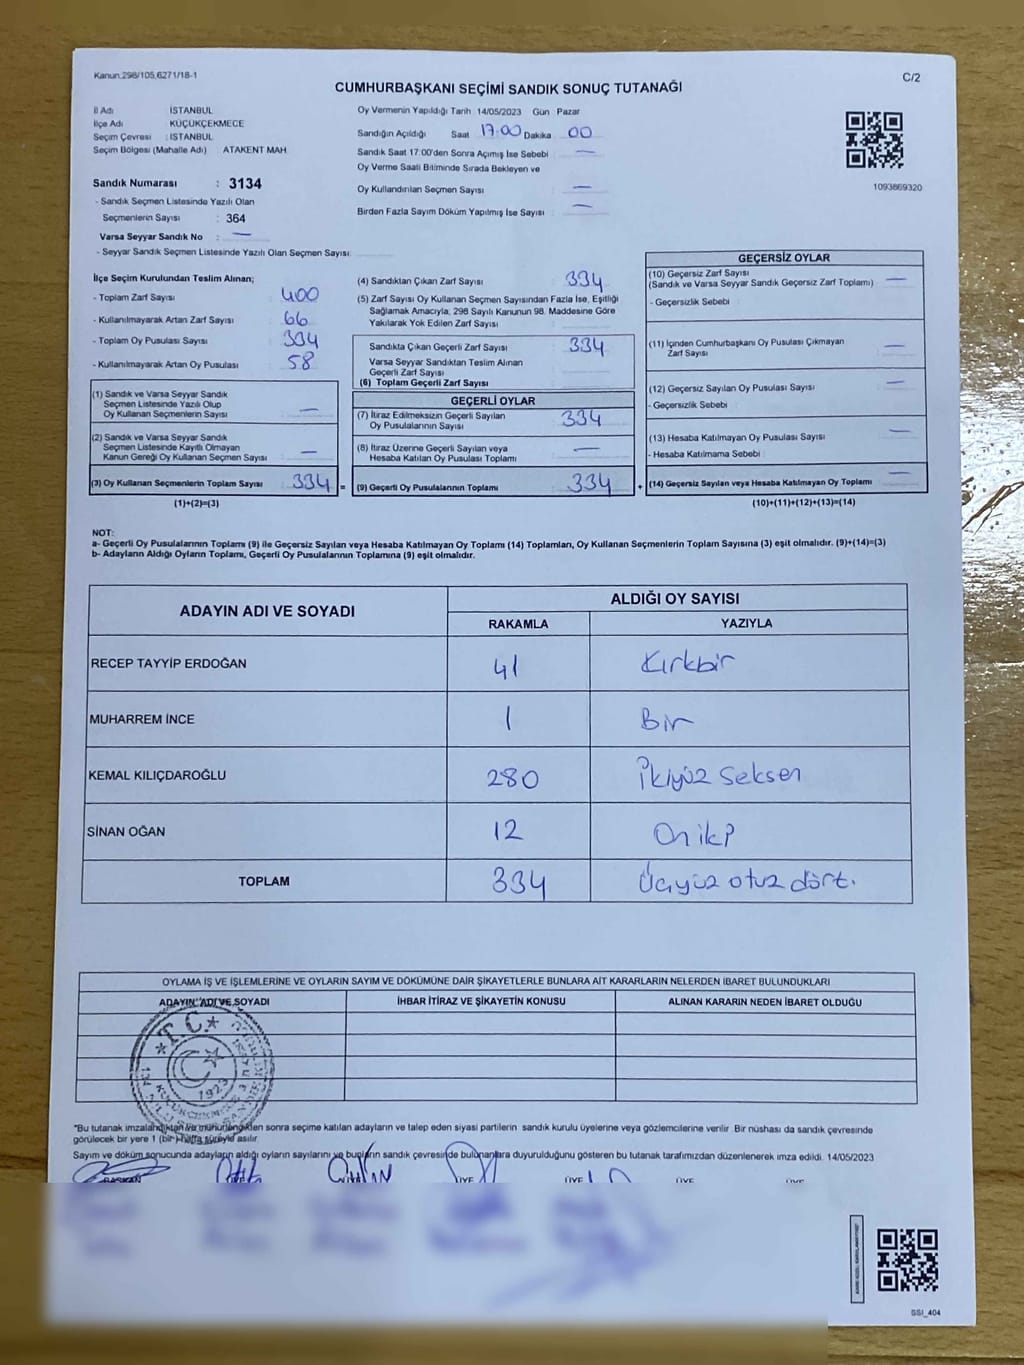 Kanun.298/105,6271/18-1
C/2
CUMHURBAŞKANI SEÇİMİ SANDIK SONUÇ TUTANAĞI
İl Adı İSTANBUL
İlçe Adı KÜÇÜKÇEKMECE
Seçim Çevresi : İSTANBUL
Seçim Bölgesi (Mahalle Adı) ATAKENT MAH.
Sandık Numarası : 3134
- Sandık Seçmen Listesinde Yazılı Olan
Seçmenlerin Sayısı : 364
Varsa Seyyar Sandık No : —
- Seyyar Sandık Seçmen Listesinde Yazılı Olan Seçmen Sayısı
Oy Vermenin Yapıldığı Tarih 14/05/2023 Gün Pazar
Sandığın Açıldığı Saat 17:00 Dakika 00
Sandık Saat 17:00'den Sonra Açımış İse Sebebi —
Oy Verme Saati Bitiminde Sırada Bekleyen ve
Oy Kullandırılan Seçmen Sayısı —
Birden Fazla Sayım Döküm Yapılmış İse Sayısı —
1093869320
İlçe Seçim Kurulundan Teslim Alınan;
- Toplam Zarf Sayısı 400
- Kullanılmayarak Artan Zarf Sayısı 66
- Toplam Oy Pusulası Sayısı 334
- Kullanılmayarak Artan Oy Pusulası 58
(1) Sandık ve Varsa Seyyar Sandık
Seçmen Listesinde Yazılı Olup
Oy Kullanan Seçmenlerin Sayısı —
(2) Sandık ve Varsa Seyyar Sandık
Seçmen Listesinde Kayıtlı Olmayan
Kanun Gereği Oy Kullanan Seçmen Sayısı —
(3) Oy Kullanan Seçmenlerin Toplam Sayısı 334 =
(1)+(2)=(3)
(4) Sandıktan Çıkan Zarf Sayısı 334
(5) Zarf Sayısı Oy Kullanan Seçmen Sayısından Fazla İse, Eşitliği
Sağlamak Amacıyla, 298 Sayılı Kanunun 98. Maddesine Göre
Yakılarak Yok Edilen Zarf Sayısı
Sandıkta Çıkan Geçerli Zarf Sayısı 334
Varsa Seyyar Sandıktan Teslim Alınan
Geçerli Zarf Sayısı
(6) Toplam Geçerli Zarf Sayısı
GEÇERLİ OYLAR
(7) İtiraz Edilmeksizin Geçerli Sayılan
Oy Pusulalarının Sayısı 334
(8) İtiraz Üzerine Geçerli Sayılan veya
Hesaba Katılan Oy Pusulası Toplamı —
(9) Geçerli Oy Pusulalarının Toplamı 334 +
GEÇERSİZ OYLAR
(10) Geçersiz Zarf Sayısı
(Sandık ve Varsa Seyyar Sandık Geçersiz Zarf Toplamı) —
- Geçersizlik Sebebi
(11) İçinden Cumhurbaşkanı Oy Pusulası Çıkmayan
Zarf Sayısı —
(12) Geçersiz Sayılan Oy Pusulası Sayısı —
- Geçersizlik Sebebi
(13) Hesaba Katılmayan Oy Pusulası Sayısı —
- Hesaba Katılmama Sebebi
(14) Geçersiz Sayılan veya Hesaba Katılmayan Oy Toplamı —
(10)+(11)+(12)+(13)=(14)
NOT:
a- Geçerli Oy Pusulalarının Toplamı (9) ile Geçersiz Sayılan veya Hesaba Katılmayan Oy Toplamı (14) Toplamları, Oy Kullanan Seçmenlerin Toplam Sayısına (3) eşit olmalıdır. (9)+(14)=(3)
b- Adayların Aldığı Oyların Toplamı, Geçerli Oy Pusulalarının Toplamına (9) eşit olmalıdır.
ADAYIN ADI VE SOYADI ALDIĞI OY SAYISI
RAKAMLA YAZIYLA
RECEP TAYYİP ERDOĞAN 41 Kırkbir
MUHARREM İNCE 1 Bir
KEMAL KILIÇDAROĞLU 280 İkiyüz Seksen
SİNAN OĞAN 12 Oniki
TOPLAM 334 Üçyüz otuz dört.
OYLAMA İŞ VE İŞLEMLERİNE VE OYLARIN SAYIM VE DÖKÜMÜNE DAİR ŞİKAYETLERLE BUNLARA AİT KARARLARIN NELERDEN İBARET BULUNDUKLARI
ADAYIN ADI VE SOYADI İHBAR İTİRAZ VE ŞİKAYETİN KONUSU ALINAN KARARIN NEDEN İBARET OLDUĞU
T.C.
1923
*Bu tutanak imzalandıktan ve mühürlendikten sonra seçime katılan adayların ve talep eden siyasi partilerin sandık kurulu üyelerine veya gözlemcilerine verilir. Bir nüshası da sandık çevresinde
görülecek bir yere 1 (bir) hafta süreyle asılır.
Sayım ve döküm sonucunda adayların aldığı oyların sayılarını ve bunların sandık çevresinde bulunanlara duyurulduğunu gösteren bu tutanak tarafımızdan düzenlenerek imza edildi. 14/05/2023
BAŞKAN ÜYE ÜYE ÜYE ÜYE ÜYE
SSİ_404